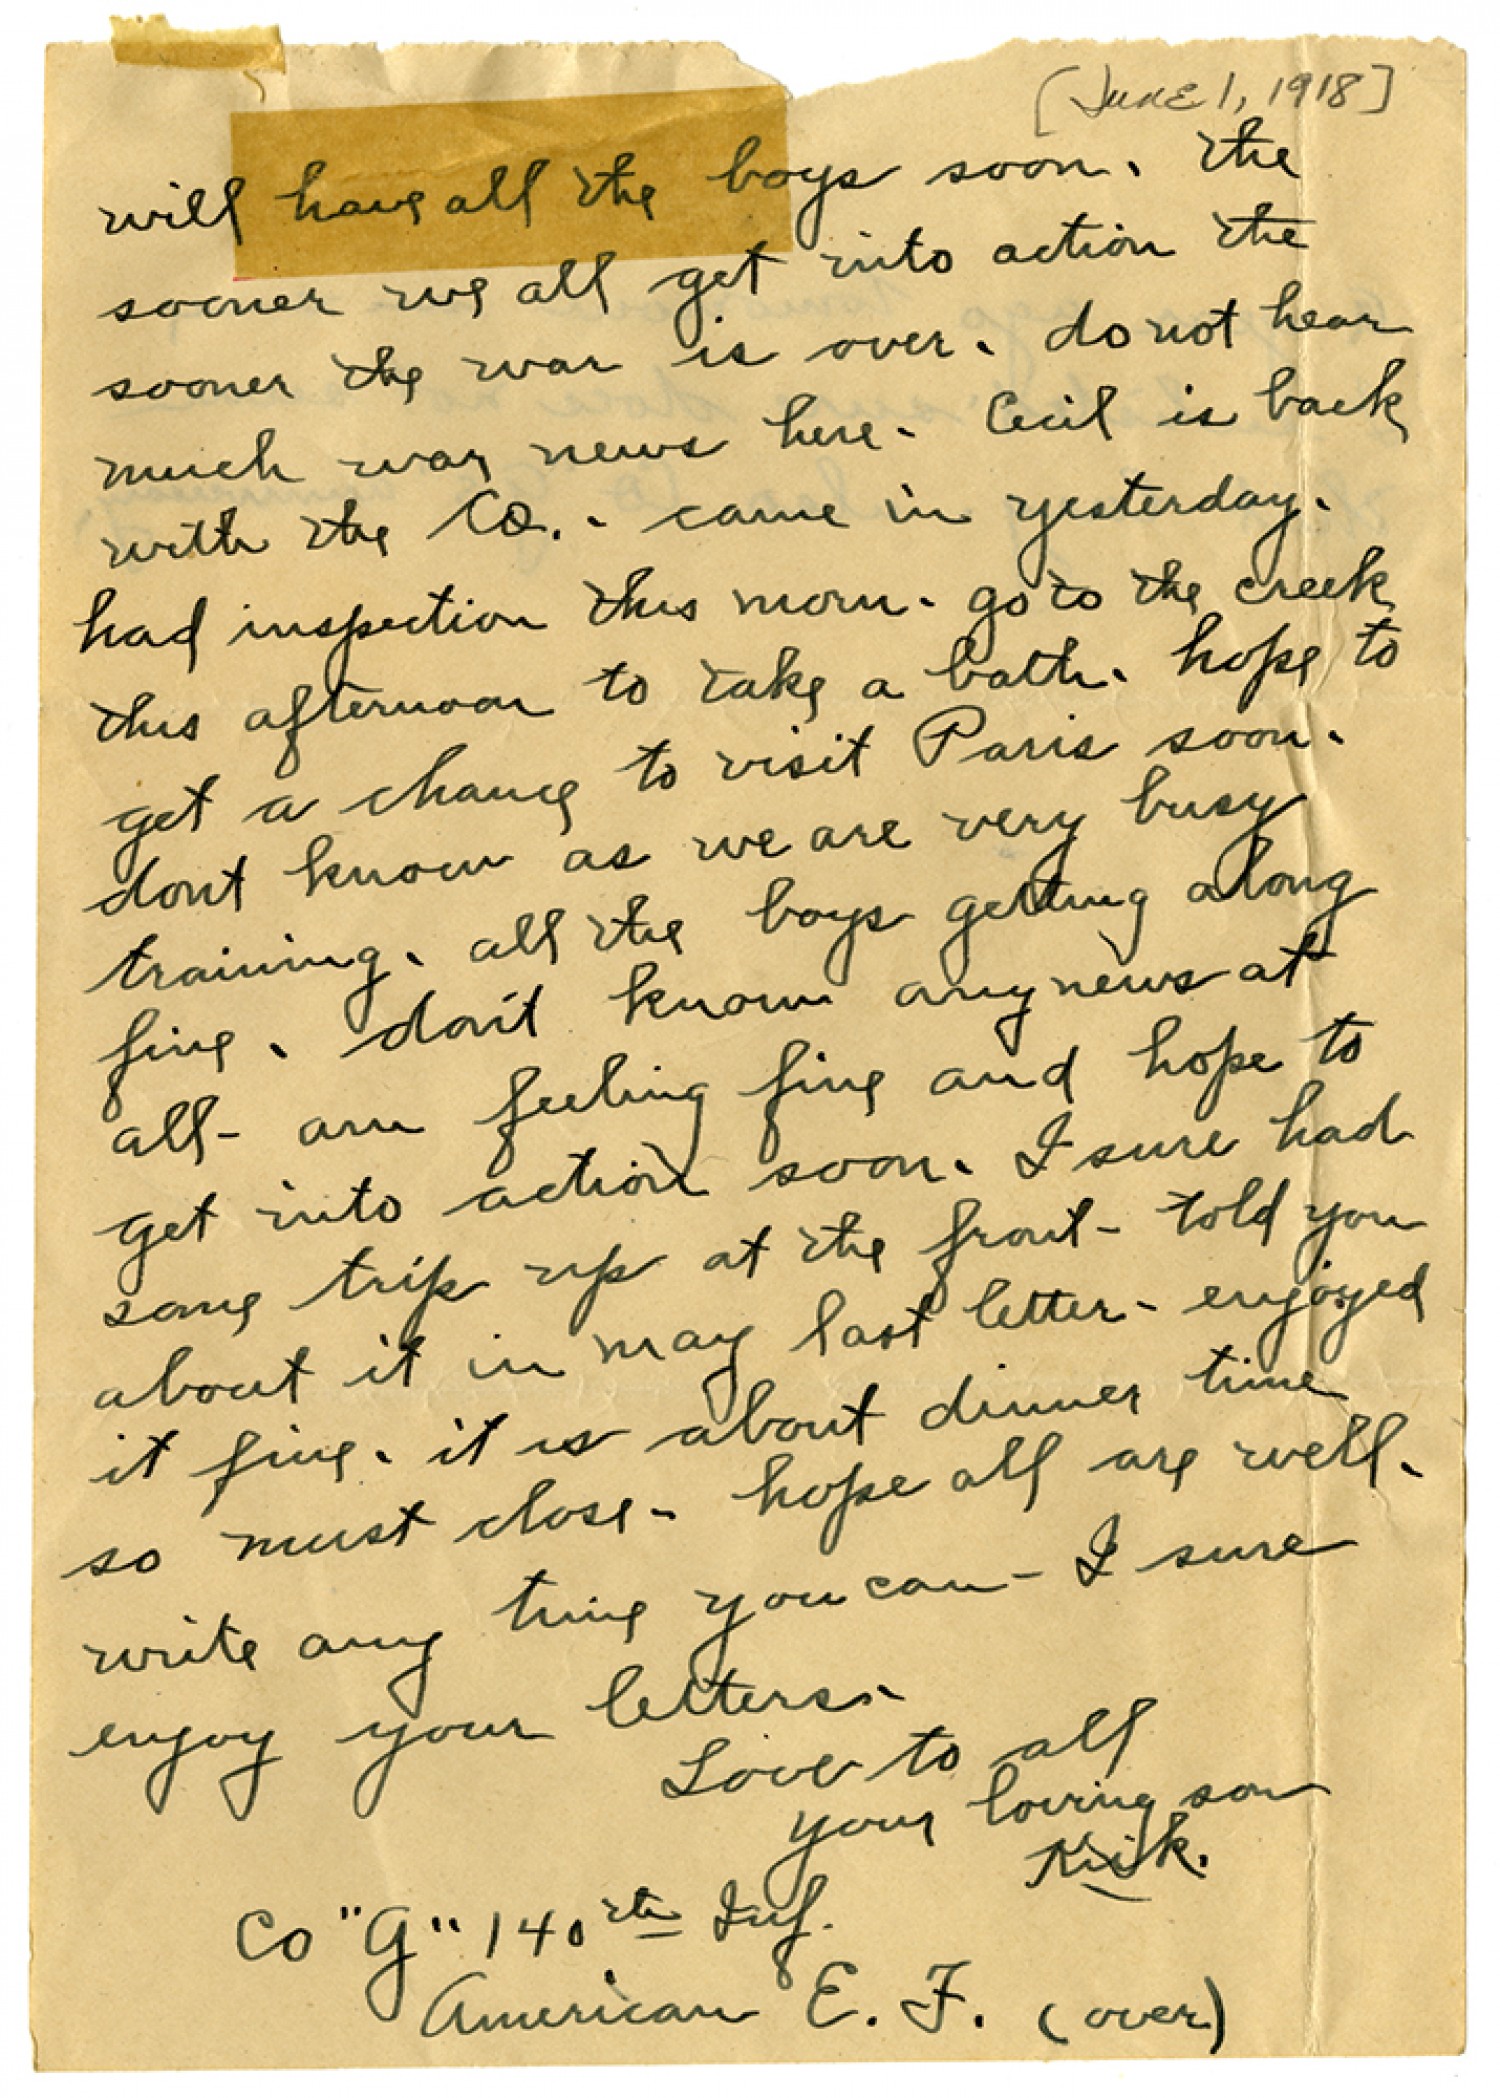 [June 1, 1918]
will have all the boys soon. the
sooner we all get into action the
sooner the war is over. do not hear
much war news here. Cecil is back
with the Co. - came in yesterday.
had inspection this morn. go to the creek
this afternoon to take a bath. hope to
get a chance to visit Paris soon.
dont know as we are very busy
training. all the boys getting along
fine. don't know any news at
all - am feeling fine and hope to
get into action soon. I sure had
some trip up at the front - told you
about it in may last letter - enjoyed
it fine. it is about dinner time
so must close - hope all are well.
write any time you can - I sure
enjoy your letters.
Love to all
your loving son
Co "G" 140th Inf.
American E. F. (over)